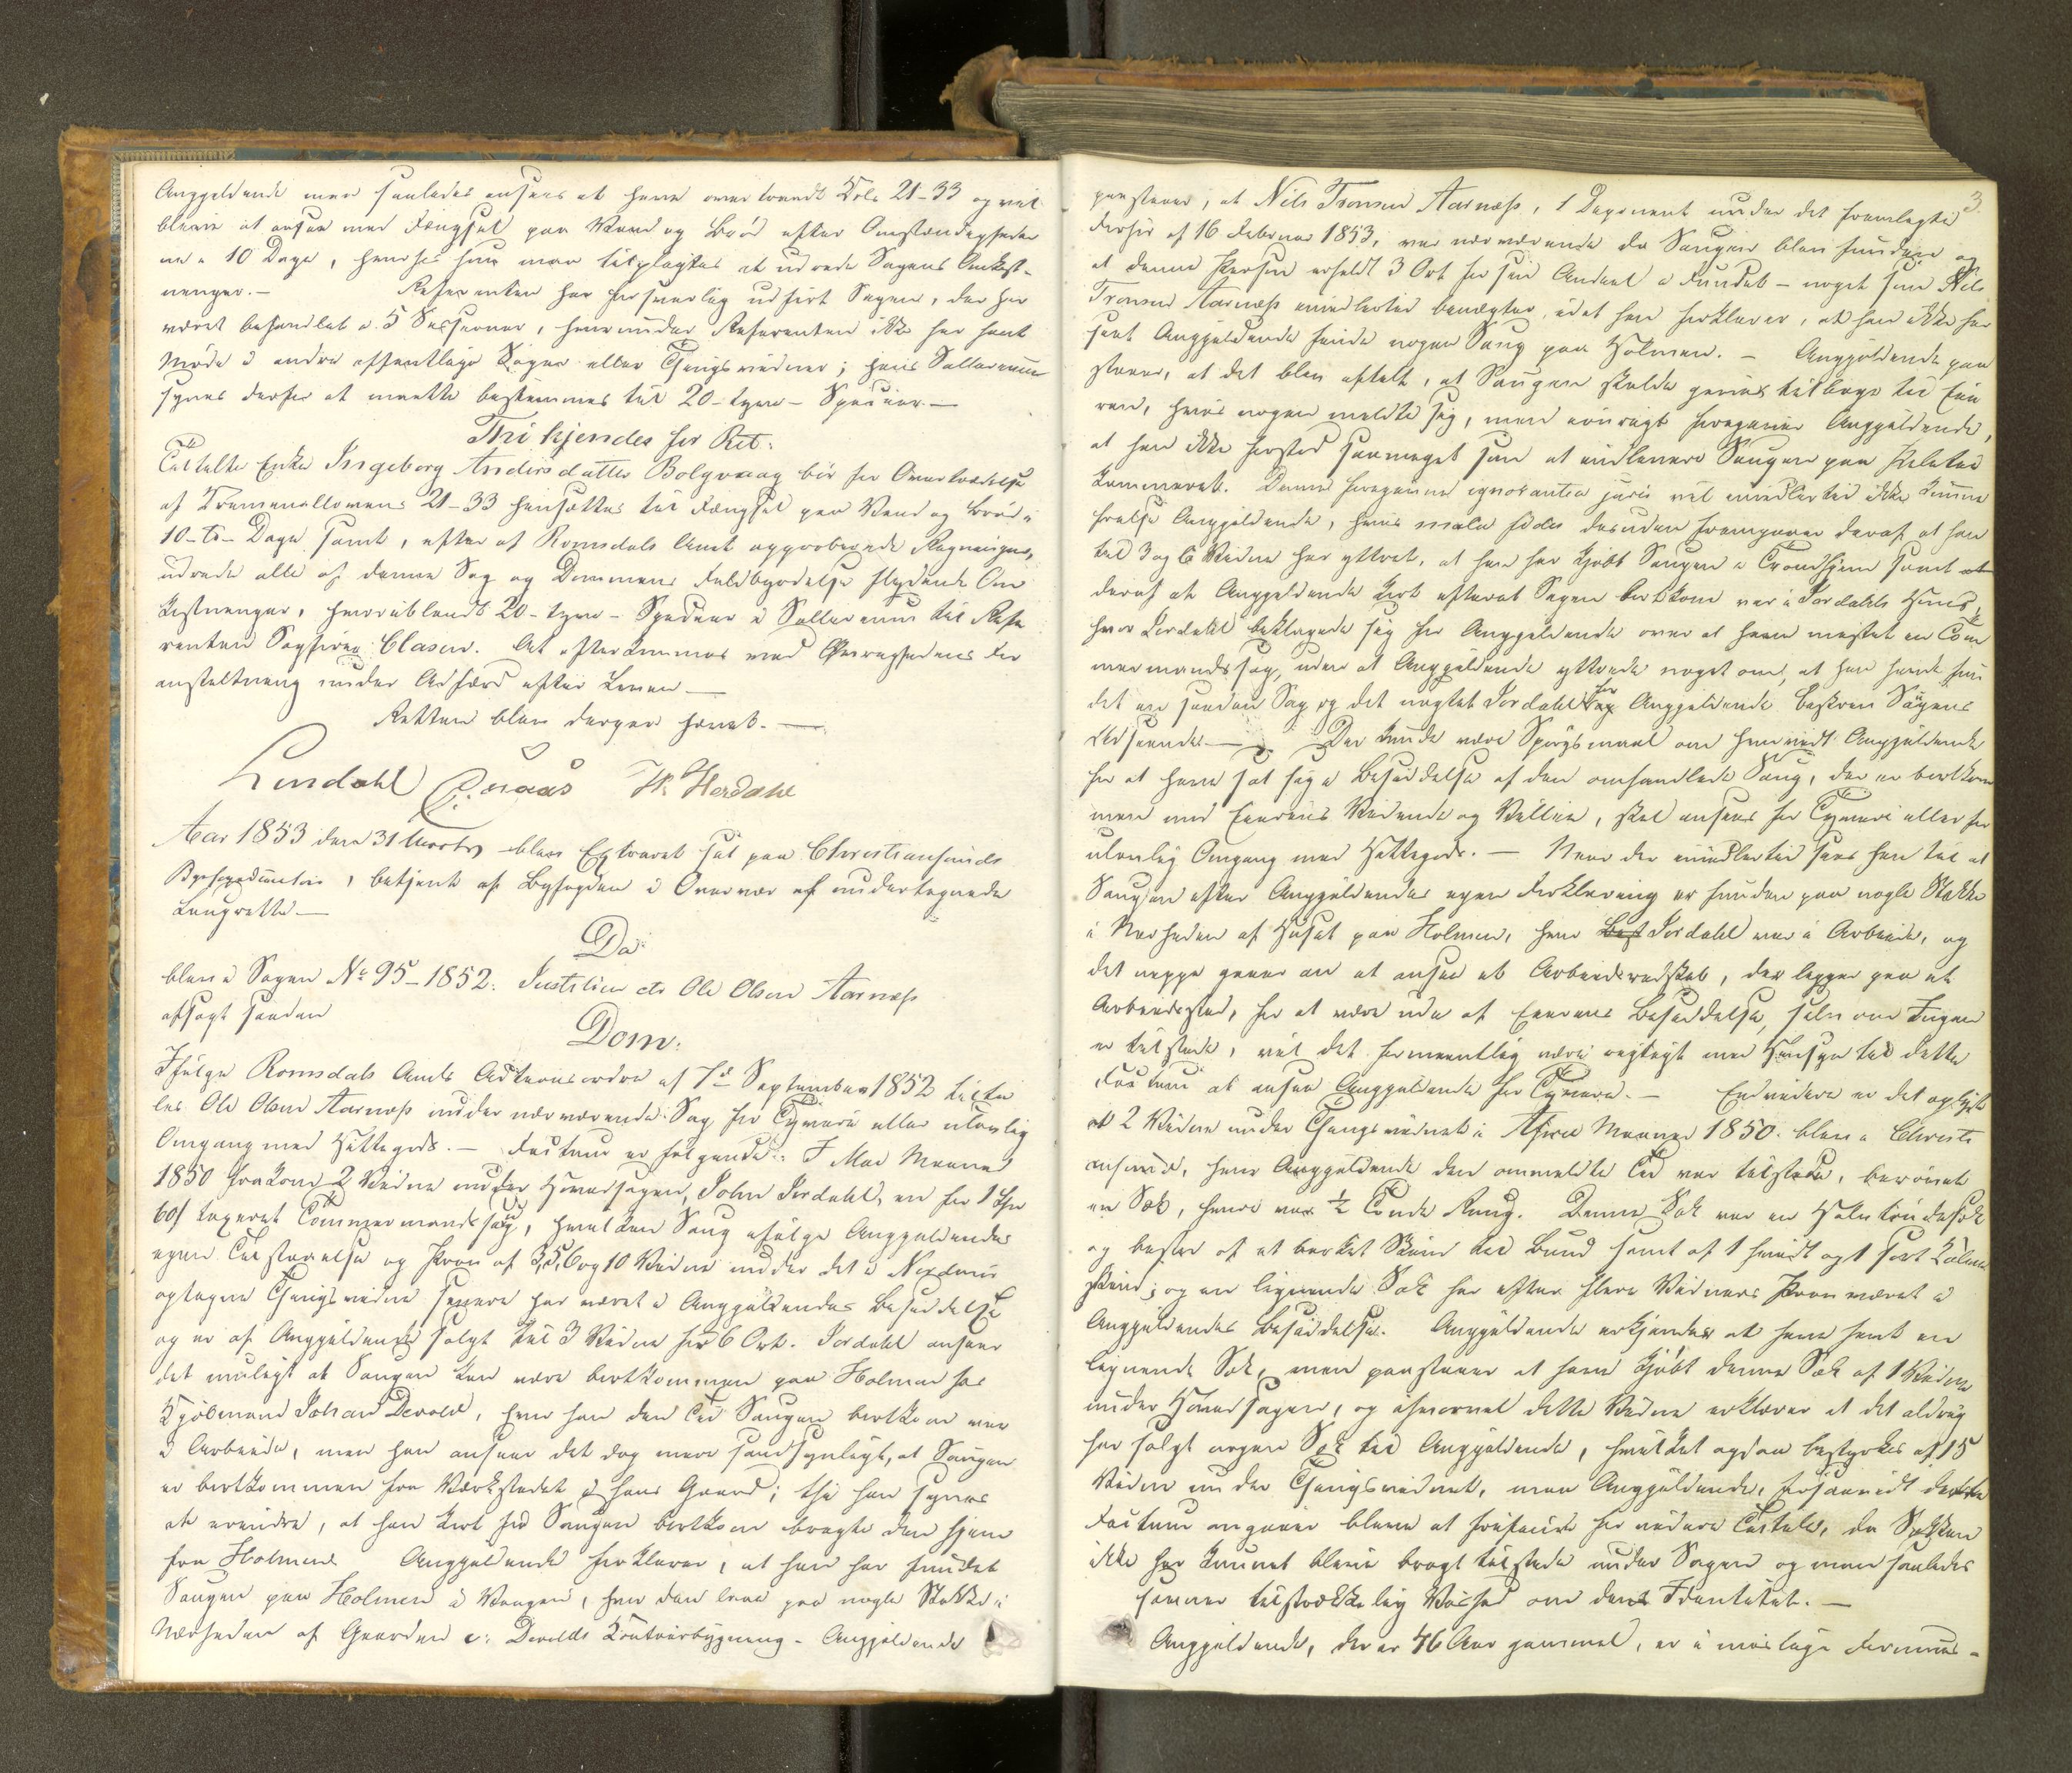 Angjeldende maa saaledes ansees at have overtraadt Krls 21-33 og vil
blive at ansee med Fængsel paa Vand og Brød efter Omstændigheder
ne i 10 Dage, hvorhos hun maa tilpligtes at udrede Sagens Omkost-
ninger. — Referenten har forsvarlig udført Sagen, der har
været behandlet i 5 Sessioner, hvorunder Referenten ikke har havt
Møde i andre offentlige Sager eller Thingsvidner; hans Sallarium
synes derfor at maatte bestemmes til 20-tyve- Specier. —
Thi kjendes for Ret:
Tiltalte Enke Ingeborg Andersdatter Bolgvaag bør for Overtrædelse
af Criminallovens 21-33 hensættes til Fængsel paa Vand og Brød i
10-ti- Dage samt, efter af Romsdals Amt approberede Regninger,
udrede alle af denne Sag og Dommens Fuldbyrdelse flydende Om
kostninger, hvoriblandt 20-tyve- Specier i Sallarium til Refe
renten Sagfører Clasen. At efterkommes ved Øvrighedens For
anstaltning under Adfærd efter Loven. —
Retten blev derpaa hævet. —
Lindahl H. Herdahl
Aar 1853 den 31 Marts blev Extraret sat paa Christiansunds
Byfogedcontoir, betjent af Byfogden i Overvær af undertegnede
Laugrette —
Da
blev i Sagen No 95-1852. Justitien ctr Ole Olsen Aarnæss
afsagt saadan
Dom:
Ifølge Romsdals Amts Actionsordre af 1ste September 1852 tilta
les Ole Olsen Aarnæss under nærværende Sag for Tyveri eller ulovlig
Omgang med Hittegods. — Factum er følgende: I Mai Maaned
1850 frakom 2 Vidne under Hovedsagen, John Jordahl, en for 1 Ort
60 s taxeret Tømmermandssaug, hvilken Saug ifølge Angjeldendes
egen Tilstaaelse og Prov af 3, 5, 6 og 10 Vidne under det i Nordmør
optagne Thingsvidne senere har været i Angjeldendes Besiddelse
og er af Angjeldende solgt til 3 Vidne for 6 Ort. Jordahl anseer
det muligt at Saugen kan være bortkommen paa Holmen hos
Kjøbmand Johan Devold, hvor han den Tid Saugen bortkom var
i Arbeide, men han anseer det dog mere sandsynligt, at Saugen
er bortkommen fra Værkstedet i hans Gaard; thi han synes
at erindre, at han kort før Saugen bortkom bragte den hjem
fra Holmen. Angjeldende forklarer, at han har fundet
Saugen paa Holmen i Vaagen, hvor den laae paa nogle Stokke i
Nærheden af Gaarden o: Devolds Contoirbygning. Angjeldende
3.
paastaaer, at Nils Tronsen Aarnæss, 1 Deponent under det fremlagte
Forhør af 16 Februar 1853, var nærværende da Saugen blev funden og
at denne Person erholdt 3 Ort for sin Andeel i Fundet — noget som Nils
Tronsen Aarnæss imidlertid benægter, idet han forklarer, at han ikke har
seet Angjeldende finde nogen Saug paa Holmen. — Angjeldende paa
staaer, at det blev aftalt, at Saugen skulde gives tilbage til Eie
ren, hvis nogen meldte sig, men iøvrigt foregiver Angjeldende,
at han ikke forstod saameget som at indlevere Saugen paa Politie
Kammeret. Denne foregivne ignorantia juris vil imidlertid ikke kunne
frelse Angjeldende, hvis mala fides desuden fremgaaer deraf at han
til 3 og 6 Vidne har yttret, at han har kjøbt Saugen i Trondhjem samt
deraf at Angjeldende kort efterat Sagen bortkom var i Jordahls Huus,
hvor Jordahl beklagede sig for Angjeldende over at have mistet en Tøm
mermandssag, uden at Angjeldende yttrede noget om, at han havde fun
det en saadan Sag og det uagtet Jordahl for Angjeldende beskrev Sagens
Udseende. — Der kunde være Spørgsmaal om hvorvidt Angjeldende
for at have sat sig i Besiddelse af den omhandlede Saug, der er bortkom
men mod Eierens Vidende og Villie, skal ansees for Tyveri eller for
ulovlig Omgang med Hittegods. — Naar der imidlertid sees hen til at
Saugen efter Angjeldendes egen Forklaring er funden paa nogle Stokke
i Nærheden af Huset paa Holmen, hvor Jordahl var i Arbeide, og
det neppe gaaer an at ansee et Arbeidsredskab, der ligger paa et
Arbeidssted, for at være ude af Eierens Besiddelse, selv om Ingen
er tilstede, vil det formeentlig være rigtigst med Hensyn til dette
Factum at ansee Angjeldende for Tyveri. — Endvidere er det oplyst
at 2 Vidne under Thingsvidnet i April Maaned 1850 blev i Christi
ansund, hvor Angjeldende den ommeldte Tid var tilstede, berøvet
en Sæk, hvori var ½ Tønde Rug. Denne Sæk var en Halvtøndesæk
og bestod af et barket Skind til Bund samt af 1 hvidt og 1 sort Kalve
skind; og en lignende Sæk har efter flere Vidners Prov været i
Angjeldendes Besiddelse. Angjeldende erkjender at have havt en
lignende Sæk, men paastaaer at have kjøbt denne Sæk af 1 Vidne
under Hovedsagen, og ihvorvel dette Vidne erklærer at det aldrig
har solgt nogen Sæk til Angjeldende, hvilket ogsaa bestyrkes af 15
Vidne under Thingsvidnet, maa Angjeldende, forsaavidt dette
Factum angaaer blive at frifinde for videre Tiltale, da Sækken
ikke har kunnet blive bragt tilstede under Sagen og man saaledes
savner tilstrækkelig Vished om dens Identitet. —
Angjeldende, der er 46 Aar gammel, er i maadelige Formues-